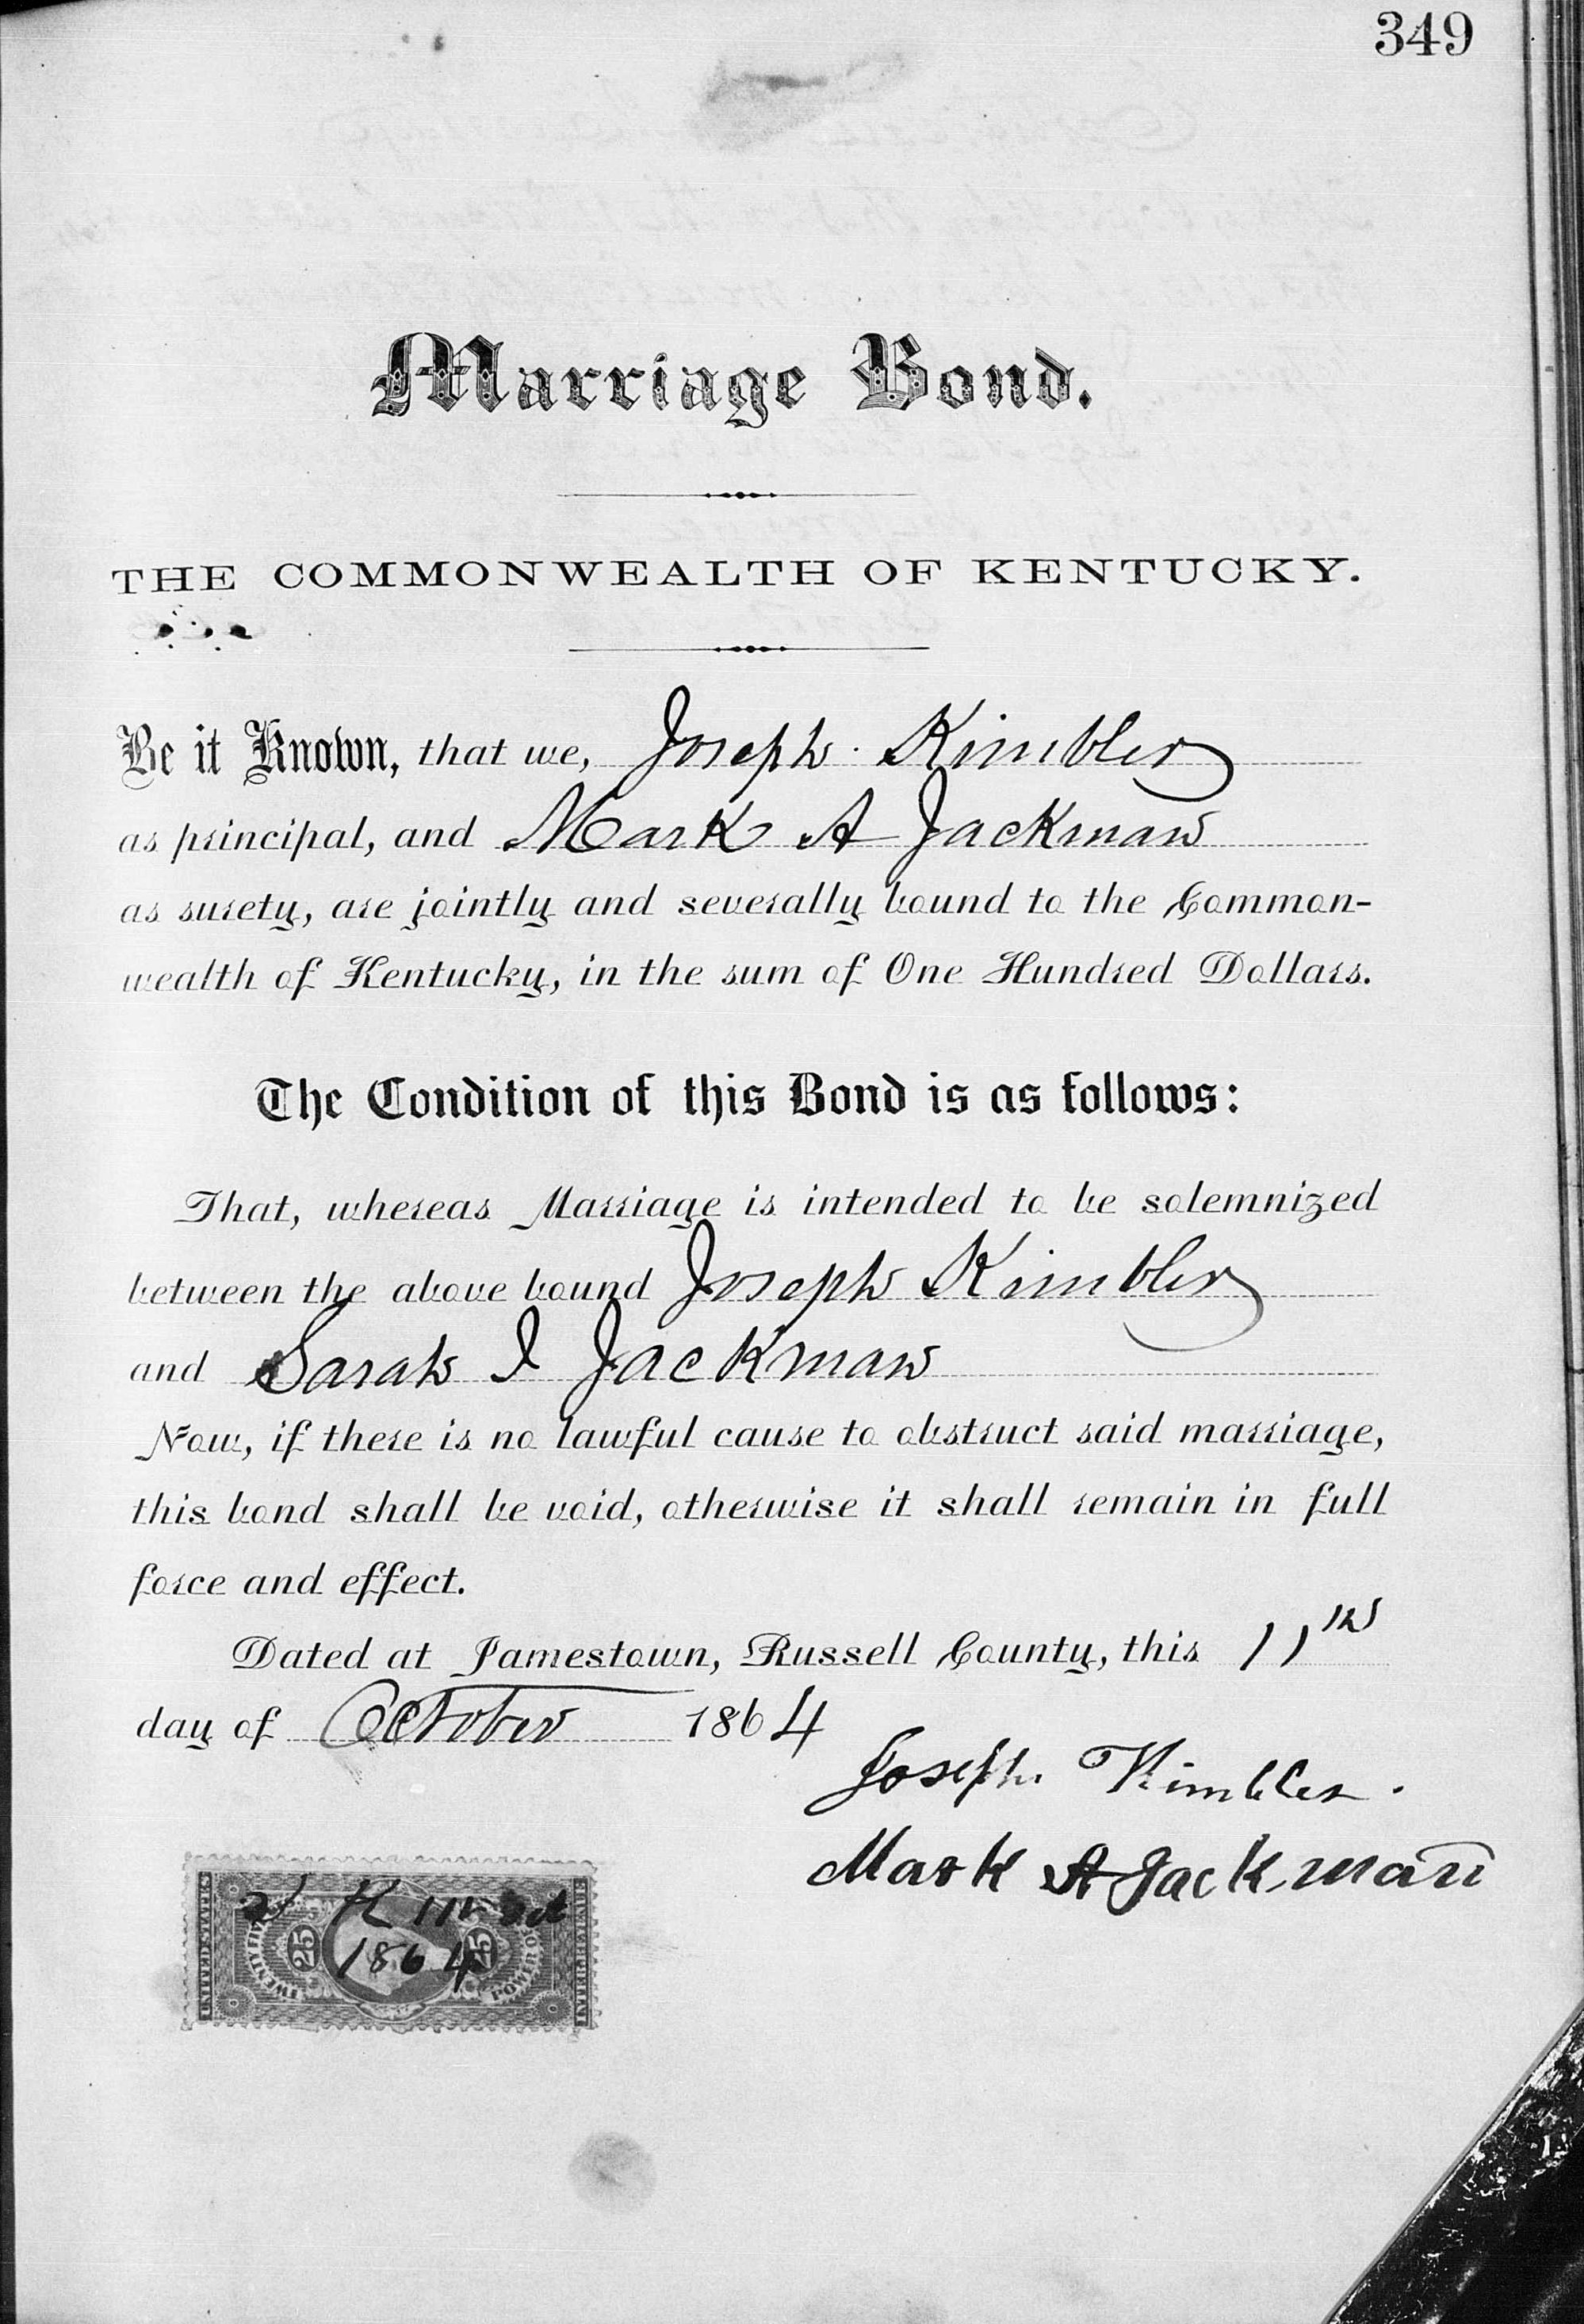 349
Marriage Bond.
THE COMMONWEALTH OF KENTUCKY.
Be it Known, that we, Joseph Kimbler
as principal, and Mark A Jackman
as surety, are jointly and severally bound to the Common-
wealth of Kentucky, in the sum of One Hundred Dollars.
The Condition of this Bond is as follows:
That, whereas Marriage is intended to be solemnized
between the above bound Joseph Kimbler
and Sarah J Jackman
Now, if there is no lawful cause to obstruct said marriage,
this bond shall be void, otherwise it shall remain in full
force and effect.
Dated at Jamestown, Russell County, this 11th
day of October 1864
Joseph Kimbler.
Mark A Jackman
1864
25 25
TWENTY FIVE POWER OF